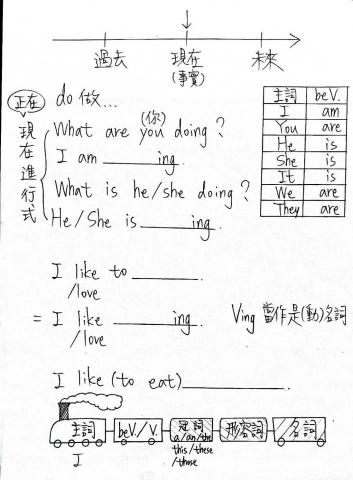 過去 現在 未來
(事實)
正在 do 做...
現在進行式
(你)
What are you doing?
I am ______ing.
What is he/she doing?
He/She is ______ing.
主詞 beV.
I am
You are
He is
She is
It is
We are
They are
I like to ______.
/love
= I like ______ing. Ving 當作是(動)名詞
/love
I like (to eat)______.
主詞 beV./V. 冠詞 形容詞 名詞
a/an/the
I this/these
/those